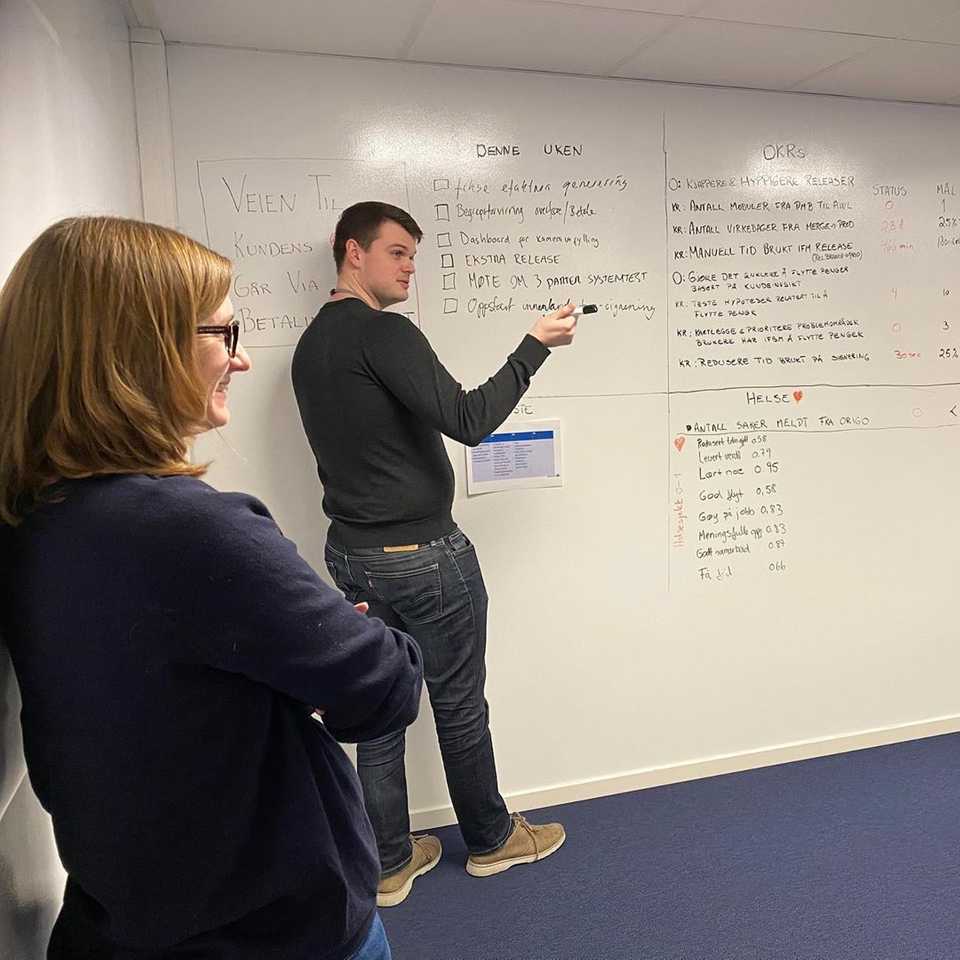 VEIEN TIL
KUNDENS
GÅR VIA
BETALIN
DENNE UKEN
fikse efaktura generering
Begrepsforvirring overføre/Betale
Dashboard for kamerautfylling
EKSTRA RELEASE
MØTE OM 3 PARTER SYSTEMTEST
Oppstart signering
OKRs
STATUS
MÅL
O: KJAPPERE & HYPPIGERE RELEASER
KR: ANTALL MODULER FRA DMB TIL AWL 0 1
KR: ANTALL VIRKEDAGER FRA MERGE → PROD 25%
KR: MANUELL TID BRUKT IFM RELEASE min
O: GJØRE DET ENKLERE Å FLYTTE PENGER
BASERT PÅ KUNDEINNSIKT
KR: TESTE HYPOTESER RELATERT TIL Å 4 10
FLYTTE PENGER
KR: KARTLEGGE & PRIORITERE PROBLEMOMRÅDER 0 3
BRUKERE HAR IFBM Å FLYTTE PENGER
KR: REDUSERE TID BRUKT PÅ SIGNERING 30 sec 25%
HELSE
ANTALL SAKER MELDT FRA ORIGO 0 <
0-1
0.58
Levert verdi 0.79
Lært noe 0.95
God flyt 0,58
Gøy på jobb 0,83
Meningsfulle opp 0.83
Godt samarbeid 0.87
066